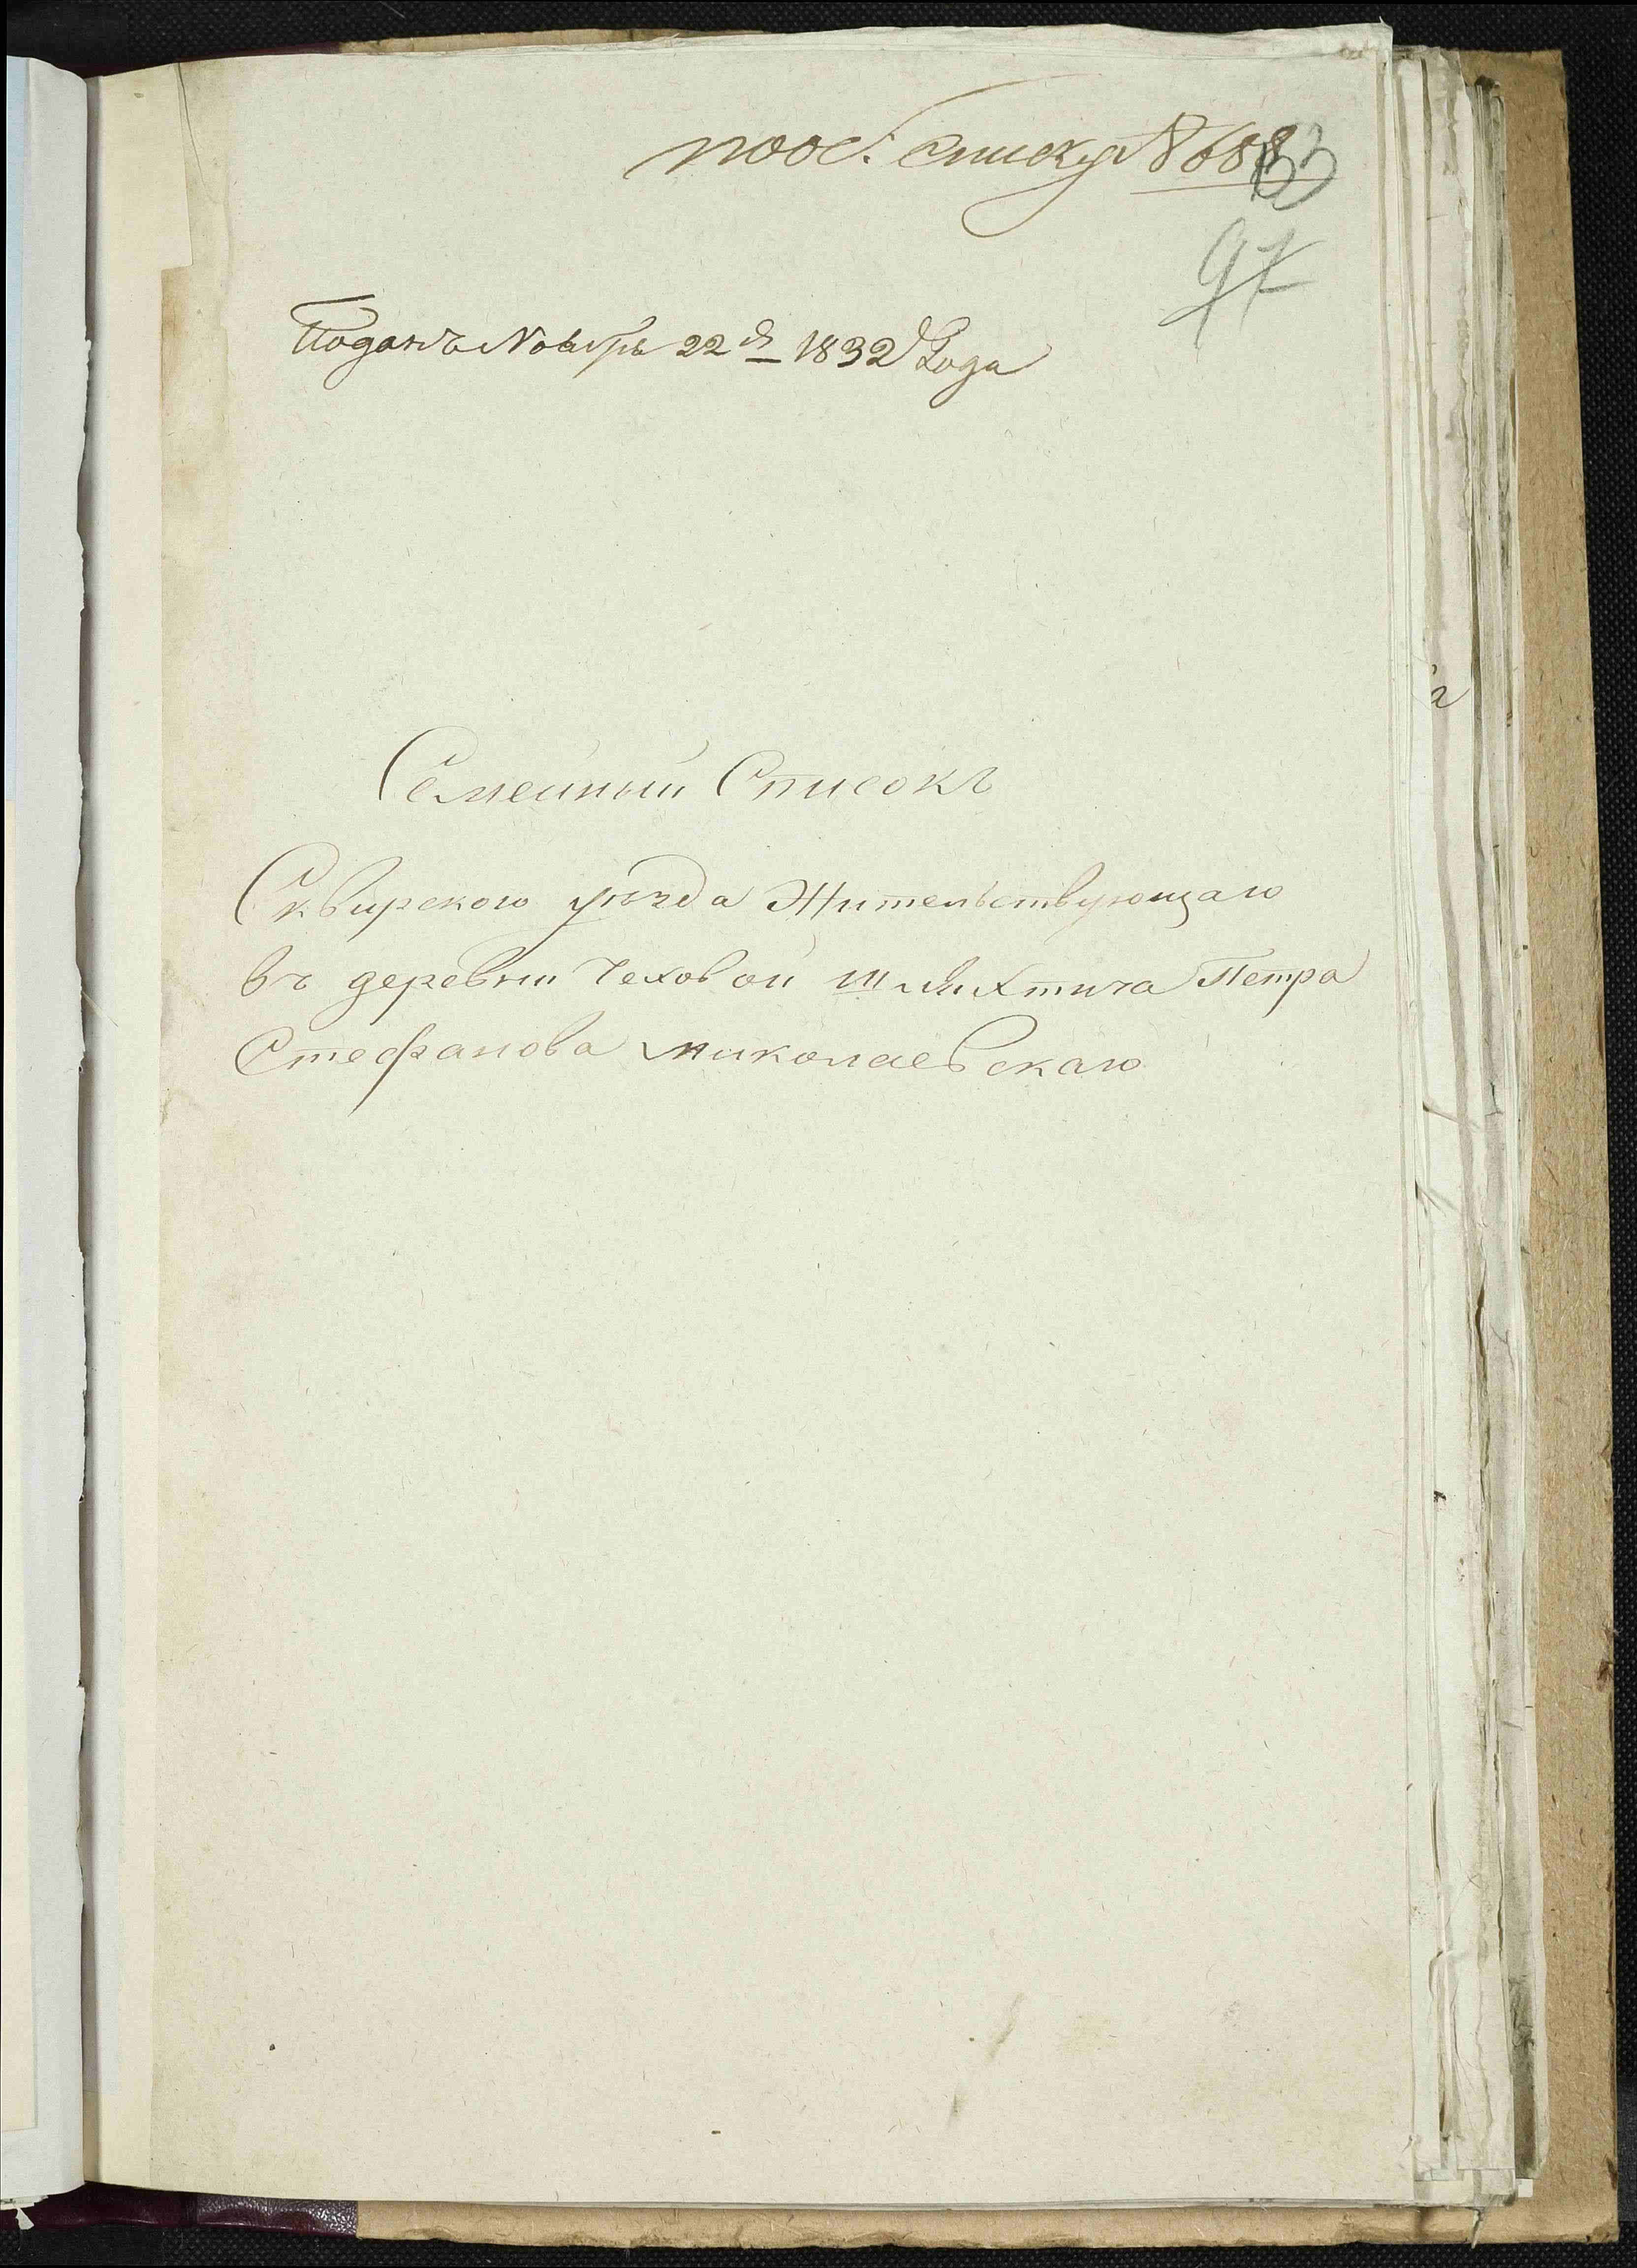 пооб. списку № 688
133
97
Поданъ Ноября 22 д 1832 Года
Семейный Списокъ
Сквирского уѣзда Жительствующаго
въ деревни Чеховой шляхтича Петра
Стефанова Миколаевскаго